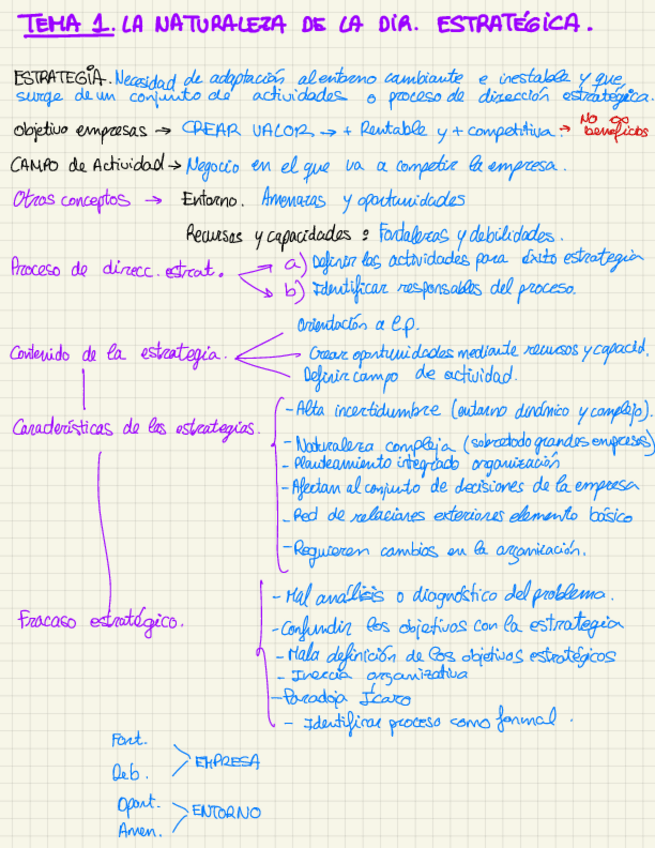 TEMA 1. LA NATURALEZA DE LA DIR. ESTRATÉGICA.
ESTRATEGIA. Necesidad de adaptación al entorno cambiante e inestable y que,
surge de un conjunto de actividades o proceso de dirección estratégica.
objetivo empresas → CREAR VALOR → + Rentable y + competitiva → No es beneficios
CAMPO de Actividad → Negocio en el que va a competir la empresa.
Otros conceptos → Entorno. Amenazas y oportunidades
Recursos y capacidades : Fortalezas y debilidades.
Proceso de direcc. estrat. a) Definir las actividades para éxito estrategia
b) Identificar responsables del proceso.
orientación a l.p.
Contenido de la estrategia. Crear oportunidades mediante recursos y capacid.
Definir campo de actividad.
- Alta incertidumbre (entorno dinámico y complejo).
Características de las estrategias.
- Naturaleza compleja (sobretodo grandes empresas)
- Planteamiento integrado organización
- Afectan al conjunto de decisiones de la empresa
- Red de relaciones exteriores elemento básico
- Requieren cambios en la organización.
- Mal análisis o diagnóstico del problema.
Fracaso estratégico.
- Confundir los objetivos con la estrategia
- Mala definición de los objetivos estratégicos
- Inercia organizativa
- Paradoja Ícaro
- Identificar proceso como formal.
Fort.
EMPRESA
Deb.
Oport.
ENTORNO
Amen.